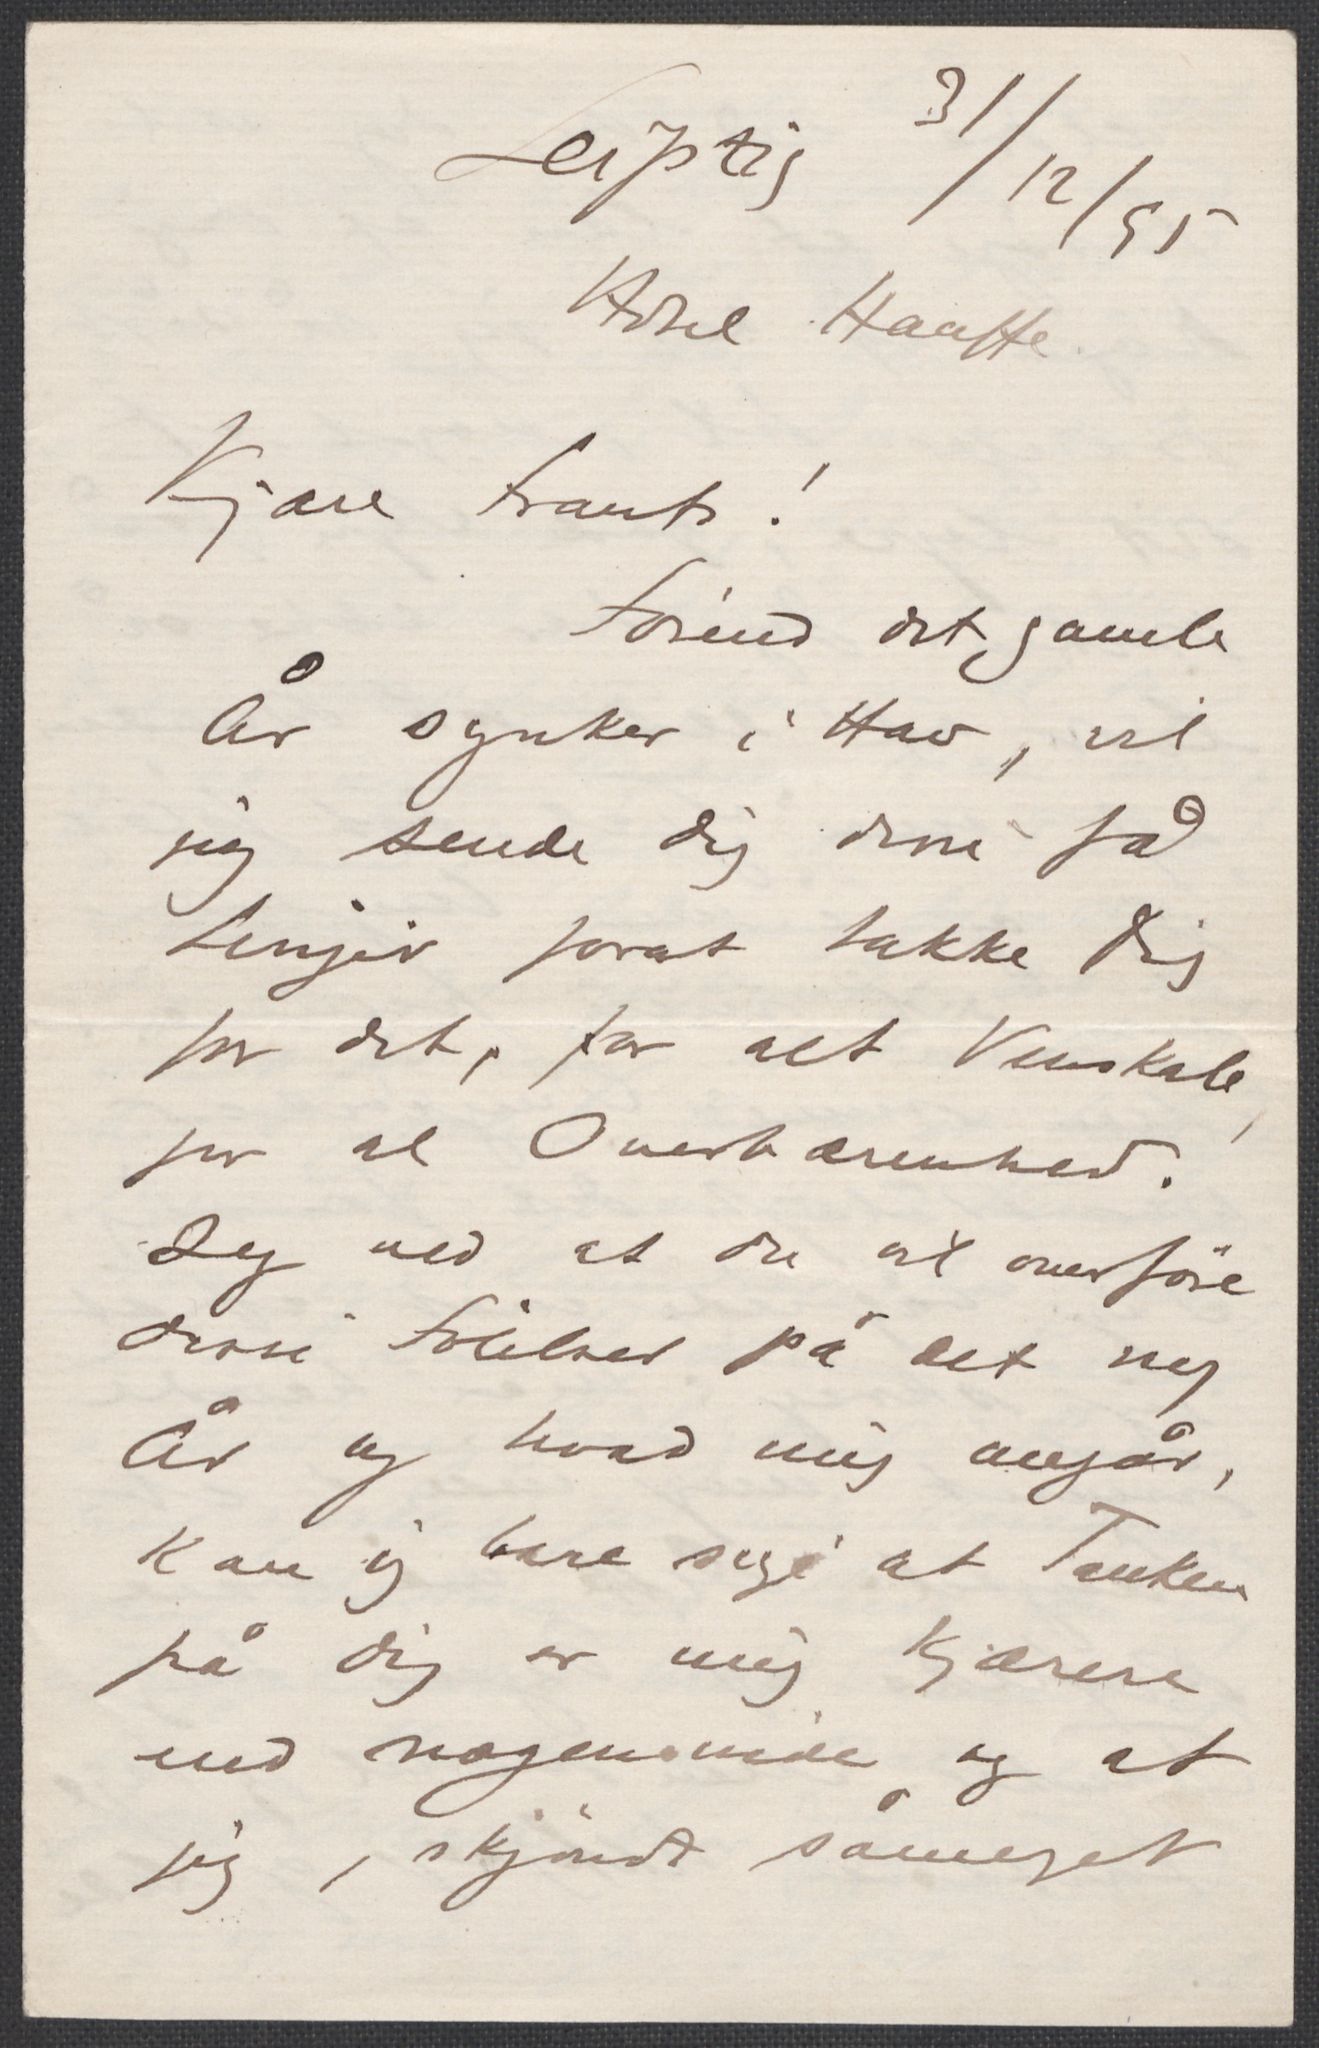 Leipzig 31/12/95
Hôtel Hauffe.
Kjære Frants!
Forinden det gamle
År synker i Hav, vil
jeg sende dig disse få
Linjer forat takke Dig
for det, for alt Venskab,
for al Overbærenhed.
Jeg ved at du vil overføre
disse Følelser på det ny
År og hvad mig angår,
kan jeg bare sige at Tanken
på dig er mig kjærere
end nogensinde og at
jeg, skjöndt såmeget